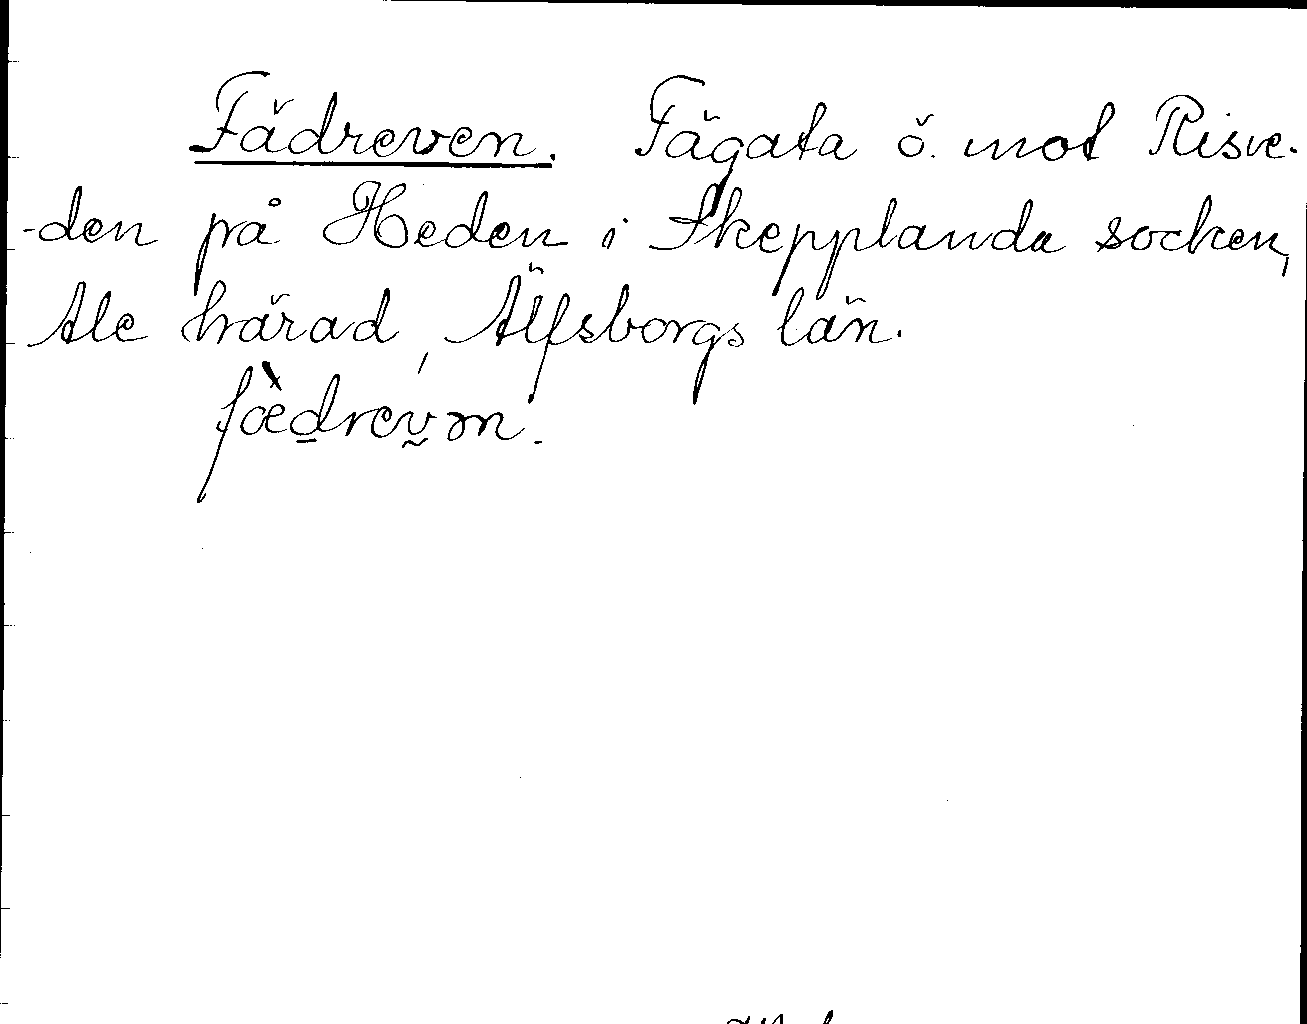 Fädreven. Fägata ö. mot Risve-
-den på Heden i Skepplanda socken,
Ale härad, Älfsborgs län.
fæ̀d̲revən.